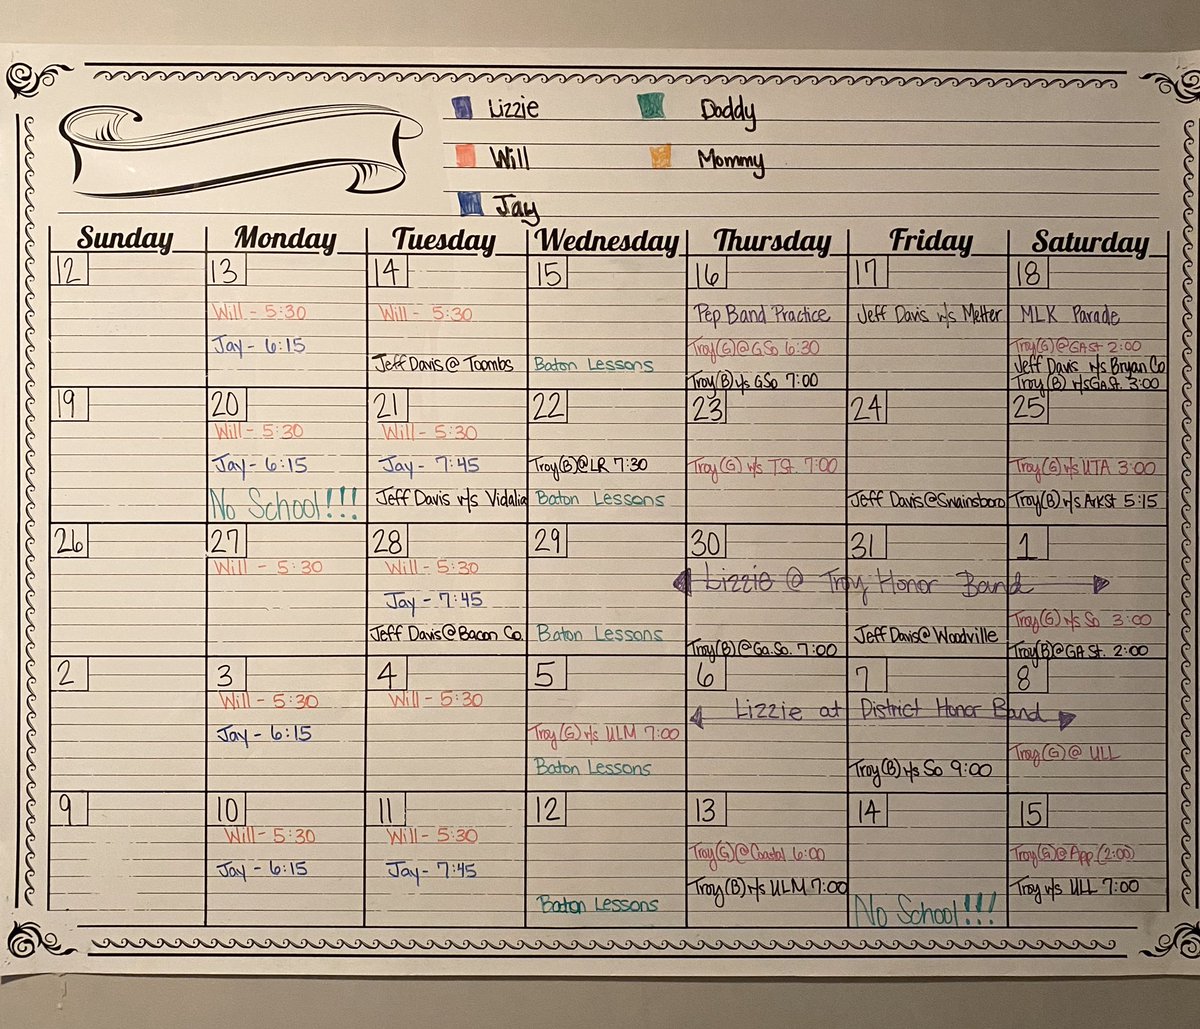 Lizzie Daddy
Will Mommy
Jay
Sunday Monday Tuesday Wednesday Thursday Friday Saturday
12
13
Will - 5:30
Jay - 6:15
14
Will - 5:30
Jeff Davis @ Toombs
15
Baton Lessons
16
Pep Band Practice
Troy(G)@GSo 6:30
Troy(B) v/s GSo 7:00
17
Jeff Davis v/s Metter
18
MLK Parade
Troy(G)@GASt 2:00
Jeff Davis v/s Bryan Co
Troy(B) v/s GA St. 3:00
19
20
Will - 5:30
Jay - 6:15
No School!!!
21
Will - 5:30
Jay - 7:45
Jeff Davis v/s Vidalia
22
Troy(B)@LR 7:30
Baton Lessons
23
Troy(G) v/s TSt. 7:00
24
Jeff Davis@Swainsboro
25
Troy(G) v/s UTA 3:00
Troy(B) v/s ArkSt 5:15
26
27
Will - 5:30
28
Will - 5:30
Jay - 7:45
Jeff Davis@Bacon Co.
29
Baton Lessons
30
31
1
Lizzie @ Troy Honor Band
Troy(B)@Ga.So. 7:00
Jeff Davis@Woodville
Troy(G) v/s So 3:00
Troy(B)@GA St. 2:00
2
3
Will - 5:30
Jay - 6:15
4
Will - 5:30
5
Troy(G) v/s ULM 7:00
Baton Lessons
6
7
8
Lizzie at District Honor Band
Troy(B) v/s So 9:00
Troy(G)@ ULL
9
10
Will - 5:30
Jay - 6:15
11
Will - 5:30
Jay - 7:45
12
Baton Lessons
13
Troy(G)@Coastal 6:00
Troy(B) v/s ULM 7:00
14
No School!!!
15
Troy(G)@App (2:00)
Troy v/s ULL 7:00